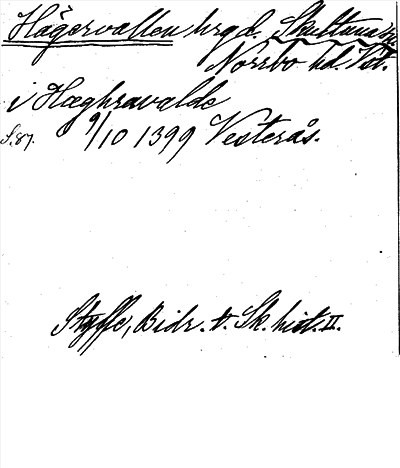 Hågervallen hrgd. Skultuna sn.
Norrbo hd. Vst.
i Hæghravalde
S. 87. 9/10 1399 Vesterås.
Styffe, Bidr. t. Sk. hist. II.